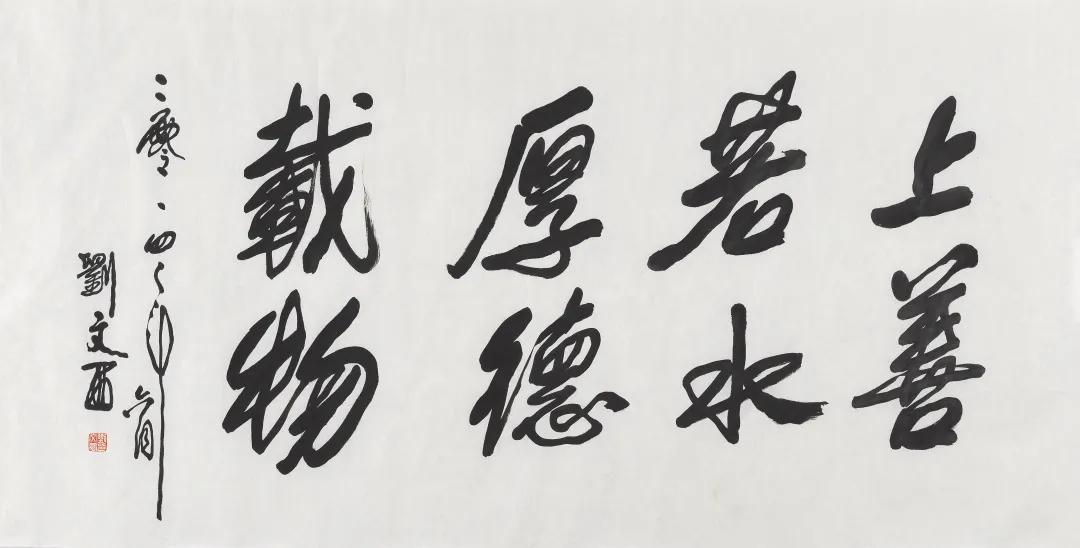 上善
若水
厚德
載物
二零一四年六月
劉文西